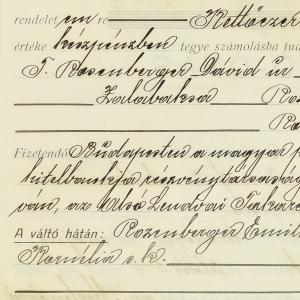 rendelet em re Kettőezer
értéke készpénzben tegye számolásba tud
T. Rosenberger Dávid úr
Zalabaksa Ro
Ra
Fizetendő Budapesten a magyar
hitelbank részvénytársaság
van, az Alsó Lendvai Takaré
A váltó hátán: Rozenberger Emil
Kornélia s. k.